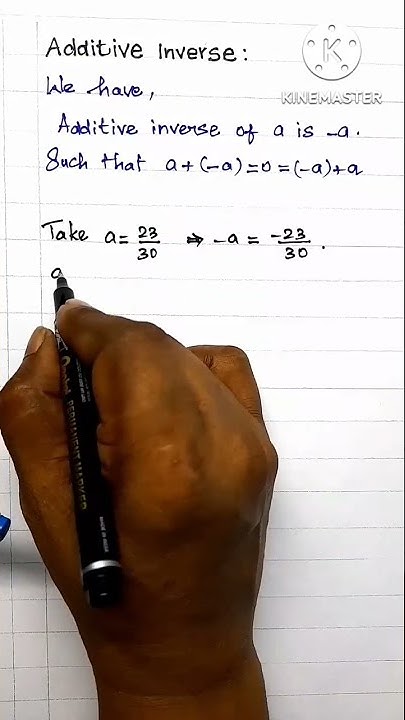 Additive Inverse:
We have,
Additive inverse of a is -a.
Such that a+(-a)=0=(-a)+a
Take a=23/30 ⇒ -a = -23/30.
a
K
KINEMASTER
PERMANENT MARKER